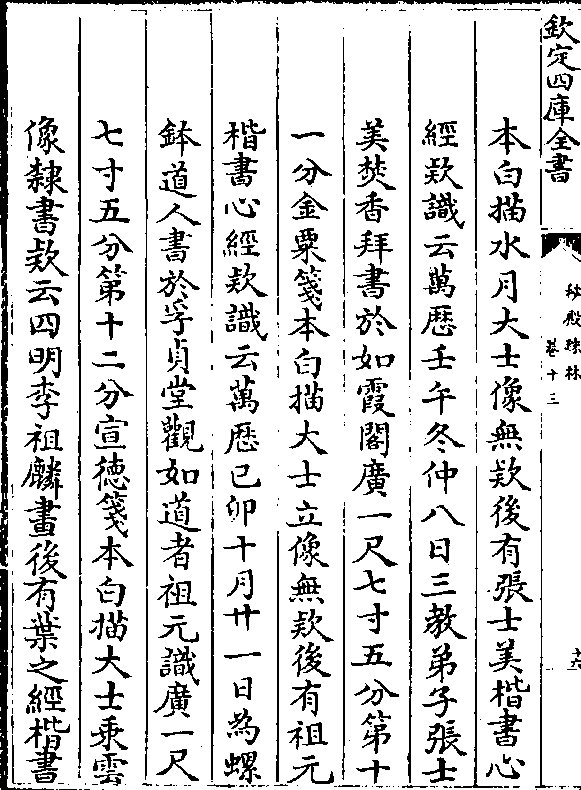 欽定四庫全書
秘殿珠林
卷十三
本白描水月大士像無欵後有張士美楷書心
經欵識云萬歴壬午冬仲八日三教弟子張士
美焚香拜書於如霞閣廣一尺七寸五分第十
一分金粟箋本白描大士立像無欵後有祖元
楷書心經欵識云萬歴己卯十月廿一日為螺
鉢道人書於孚貞堂觀如道者祖元識廣一尺
七寸五分第十二分宣徳箋本白描大士乘雲
像隸書欵云四明李祖麟畫後有葉之經楷書